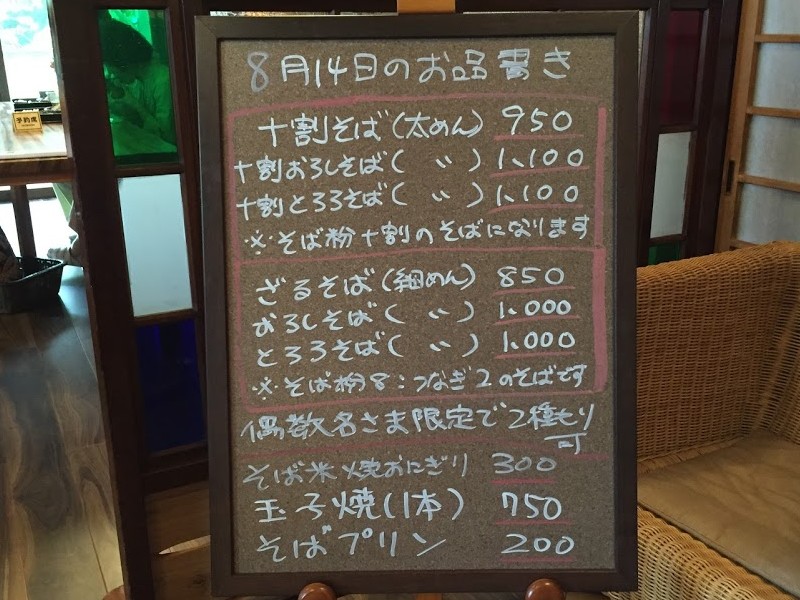 8月14日のお品書き
十割そば(太めん) 950
十割おろしそば( 〃 ) 1,100
十割とろろそば( 〃 ) 1,100
※そば粉十割のそばになります
ざるそば(細めん) 850
おろしそば( 〃 ) 1,000
とろろそば( 〃 ) 1,000
※そば粉8:つなぎ2のそばです
偶数名さま限定で2種もり
可
そば米焼おにぎり 300
玉子焼(1本) 750
そばプリン 200
予約席